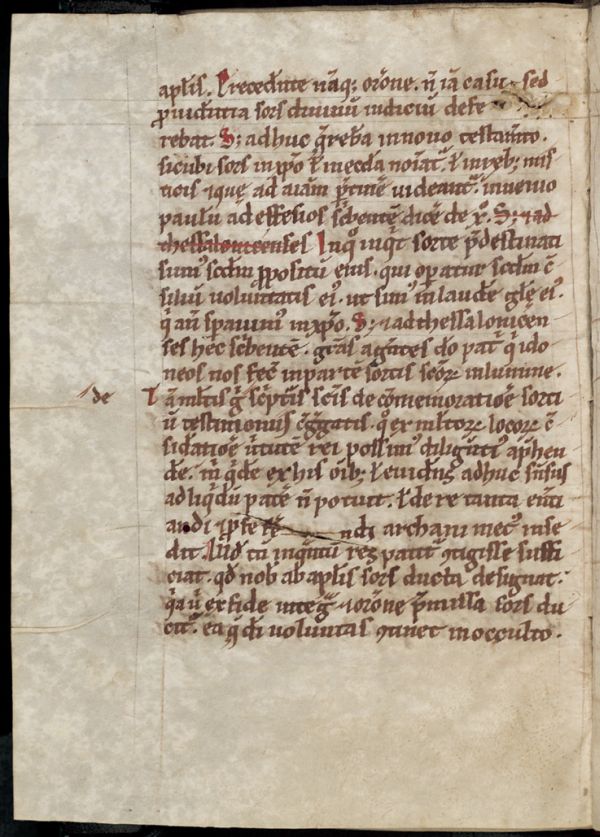 apl̅is. Precedente na̅q; or̅one. n̅ ia̅ casu. sed
ꝓuidentia sors diuinu̅ iudiciu̅ defe
rebat. S; adhuc q̅reba̅ in nouo testam̅to.
sicubi sors in xp̅o ł in eccl̅a noiat̅. ł in reb; mis
ticis ⁊ quę ad aia̅m p̅tine̅ uideant̅. inuenio
paulu̅ ad effesios sc̅bente̅ dice̅
thessalonicenses In quo inq̅t sorte p̅destinati
sum᷒ scd̅m ꝓpositu̅ eius. qui op̅atur scd̅m c̅
siliu̅ uoluntatis ei᷒. ut sim᷒ in laude̅ glę̅ ei᷒.
q̅ an̅ sp̅auim᷒ in xp̅o. S; ⁊ ad thessalonice̅n
ses hec sc̅bente̅. gr̅as agentes do̅ pat̅ q̅ ido
neos nos fec̅ in parte̅ sortis sc̅oꝝ in lumine.
de
Ta̅ multis g̅ sc̅pturis sc̅is de co̅memoratio̅e sorti
u̅ testimoniis c̅g̅gatis. q̊ ex multoꝝ locoꝝ c̅
sidatio̅e u̅tute̅ rei possim᷒ dilig̅nti᷒ ap̅hen
de̅. in̅ q̅de̅ ex his oi̅b; ł euidens adhuc sensus
ad liq̅du̅ pate̅ n̅ potuit. ł de re tanta
andi ⁊ ꝓfe re̅ ndi archani met᷒ inse
dit. Illud tn̅ inq̅ntu̅ res patit̅ ⁊tigisse suffi
ciat. qd̅ nob̅ ab apl̅is sors ducta designat.
q̅a u̅ ex fide integ̅ ⁊ or̅one p̅missa sors du
cit̅. ea q̅ di̅ uoluntas ⁊tinet in occulto.